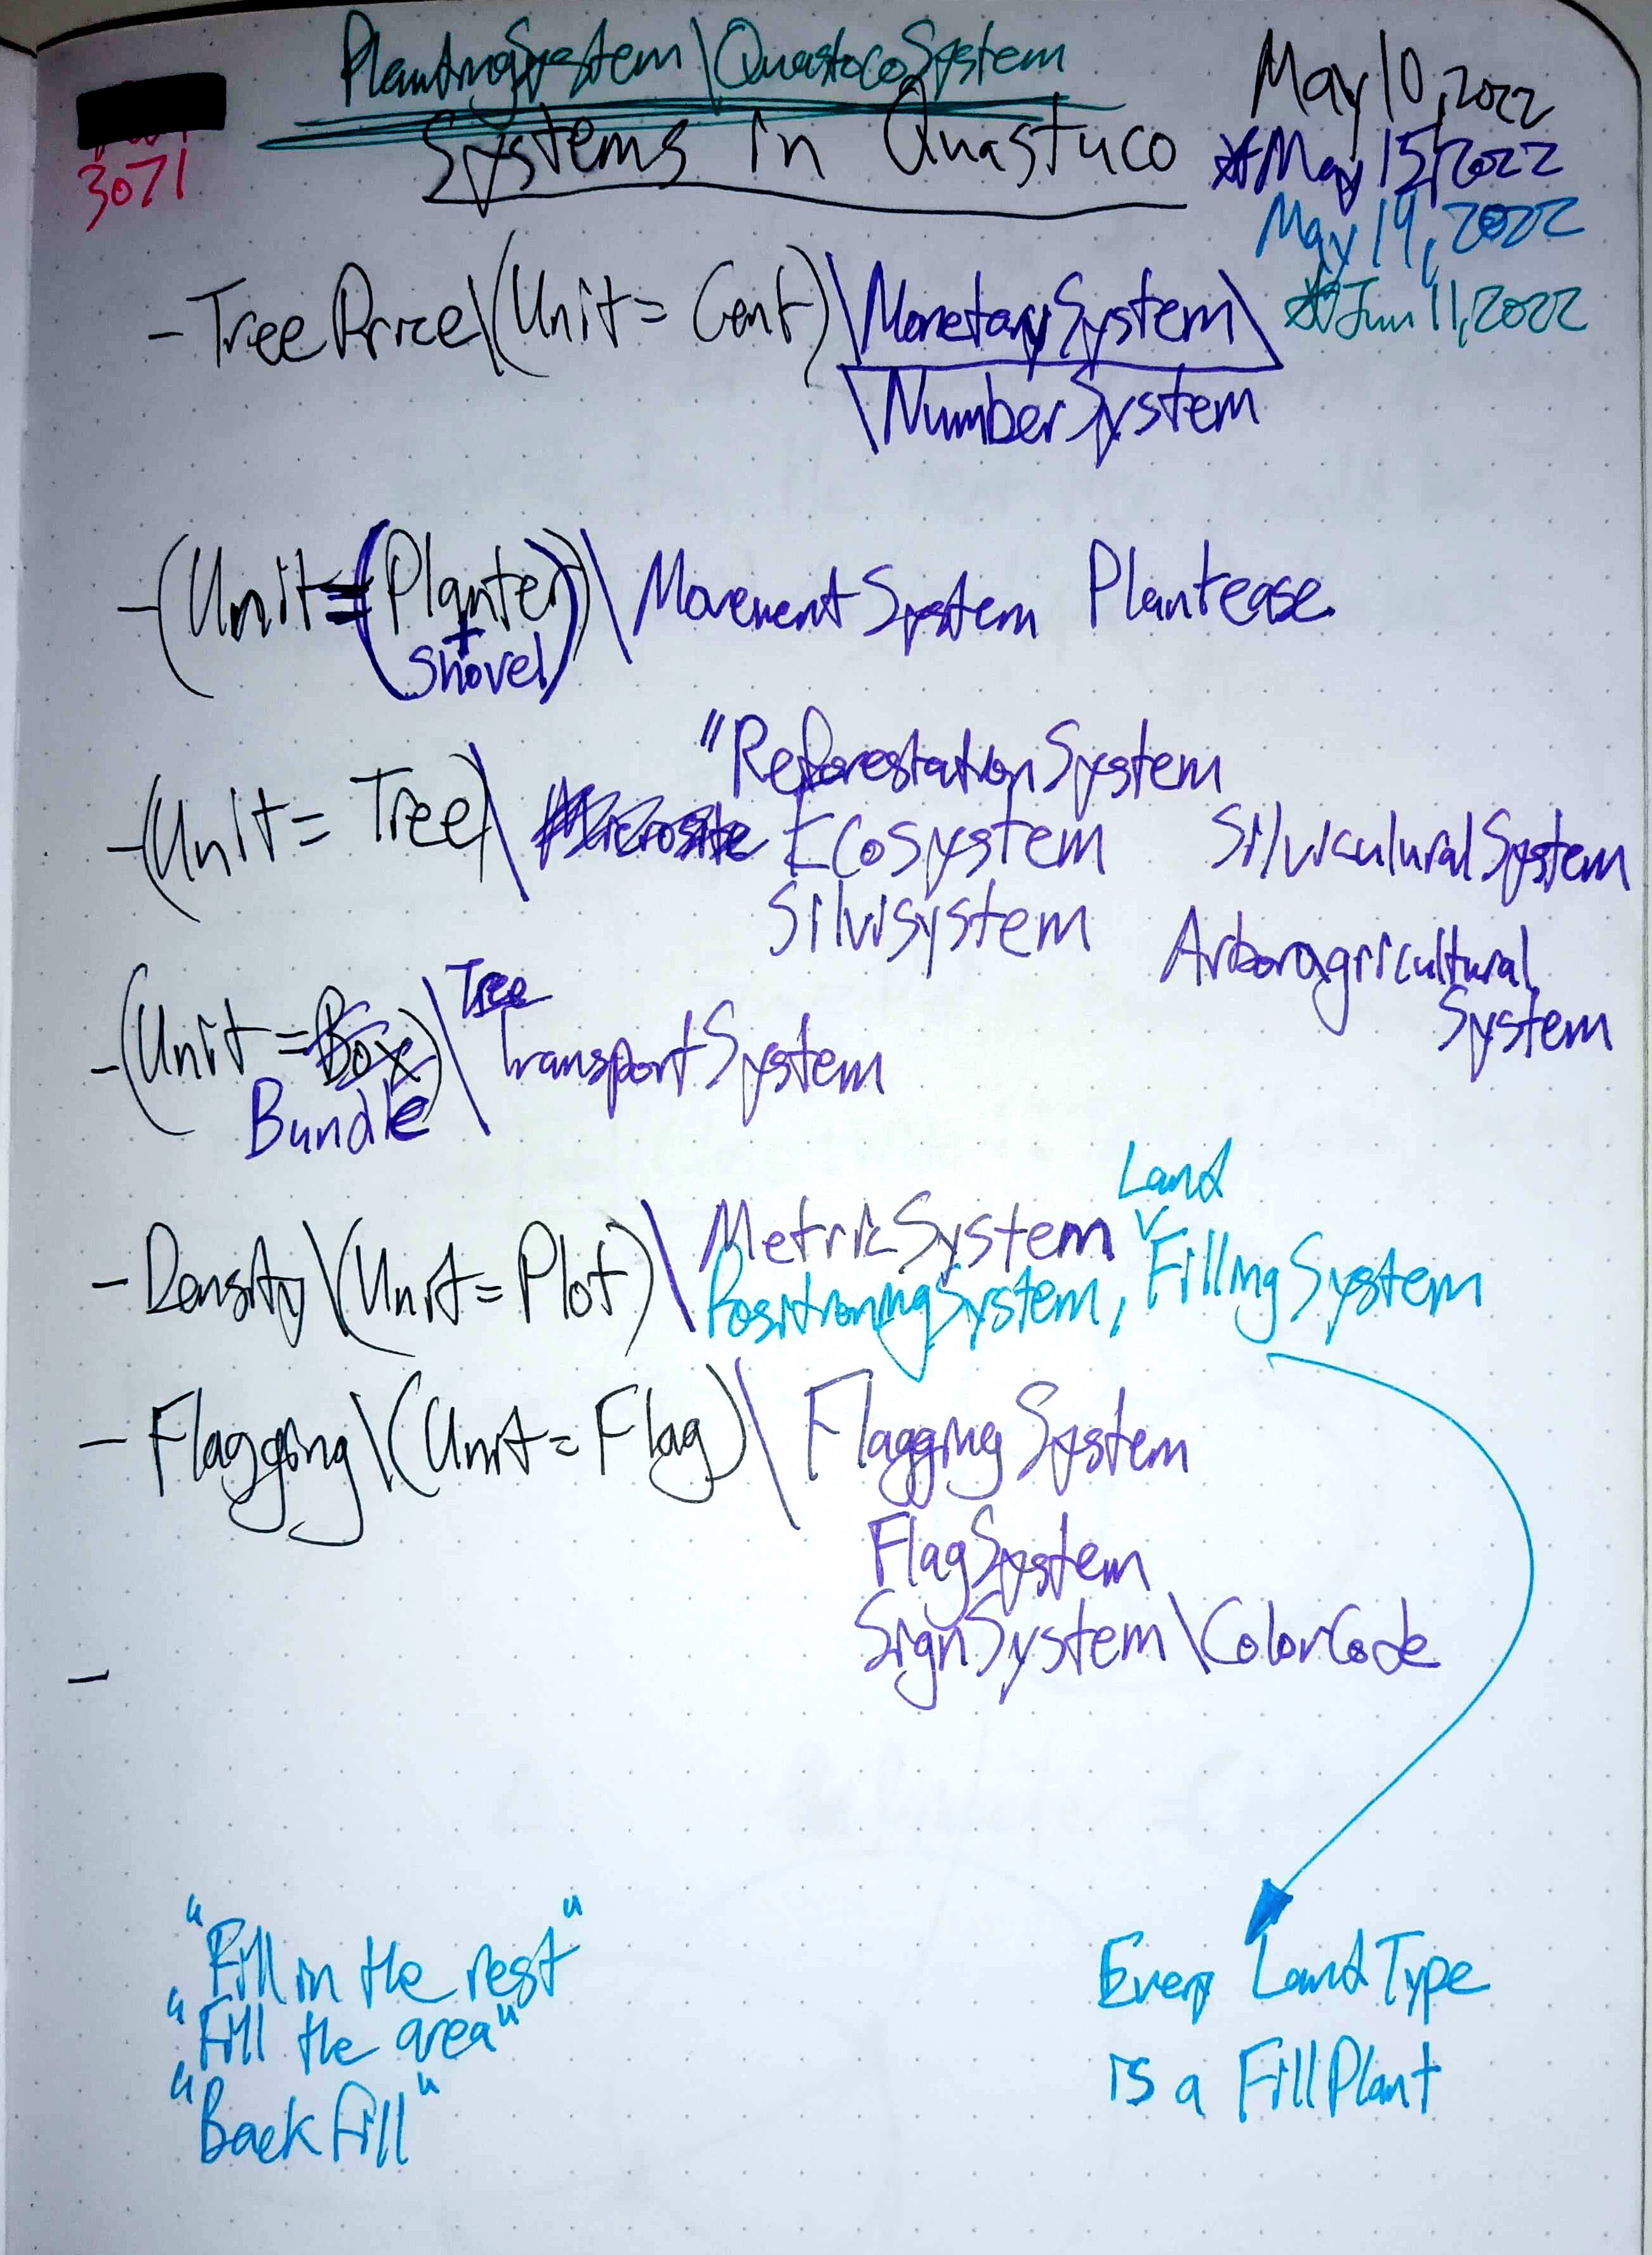 PlantingSystem\QuastocoSystem
Systems in Quastuco
May 10, 2022
*May 15, 2022
May 19, 2022
*Jun 11, 2022
3071
- TreePrice\(Unit = Cent)\MonetarySystem\
\NumberSystem
- (Unit = (Planter))\MovementSystem Plantease
+
Shovel
"ReforestationSystem
- (Unit = Tree)\ Microsite Ecosystem SilviculuralSystem
Silvisystem Arboragricultural
System
- (Unit = Box)\Tree TransportSystem
Bundle
Land
- Density\(Unit = Plot)\MetricSystem
PositioningSystem, FillingSystem
- Flagging\(Unit = Flag)\FlaggingSystem
FlagSystem
SignSystem\ColorCode
-
"Fill in the rest"
"Fill the area"
"Backfill"
Every LandType
is a FillPlant